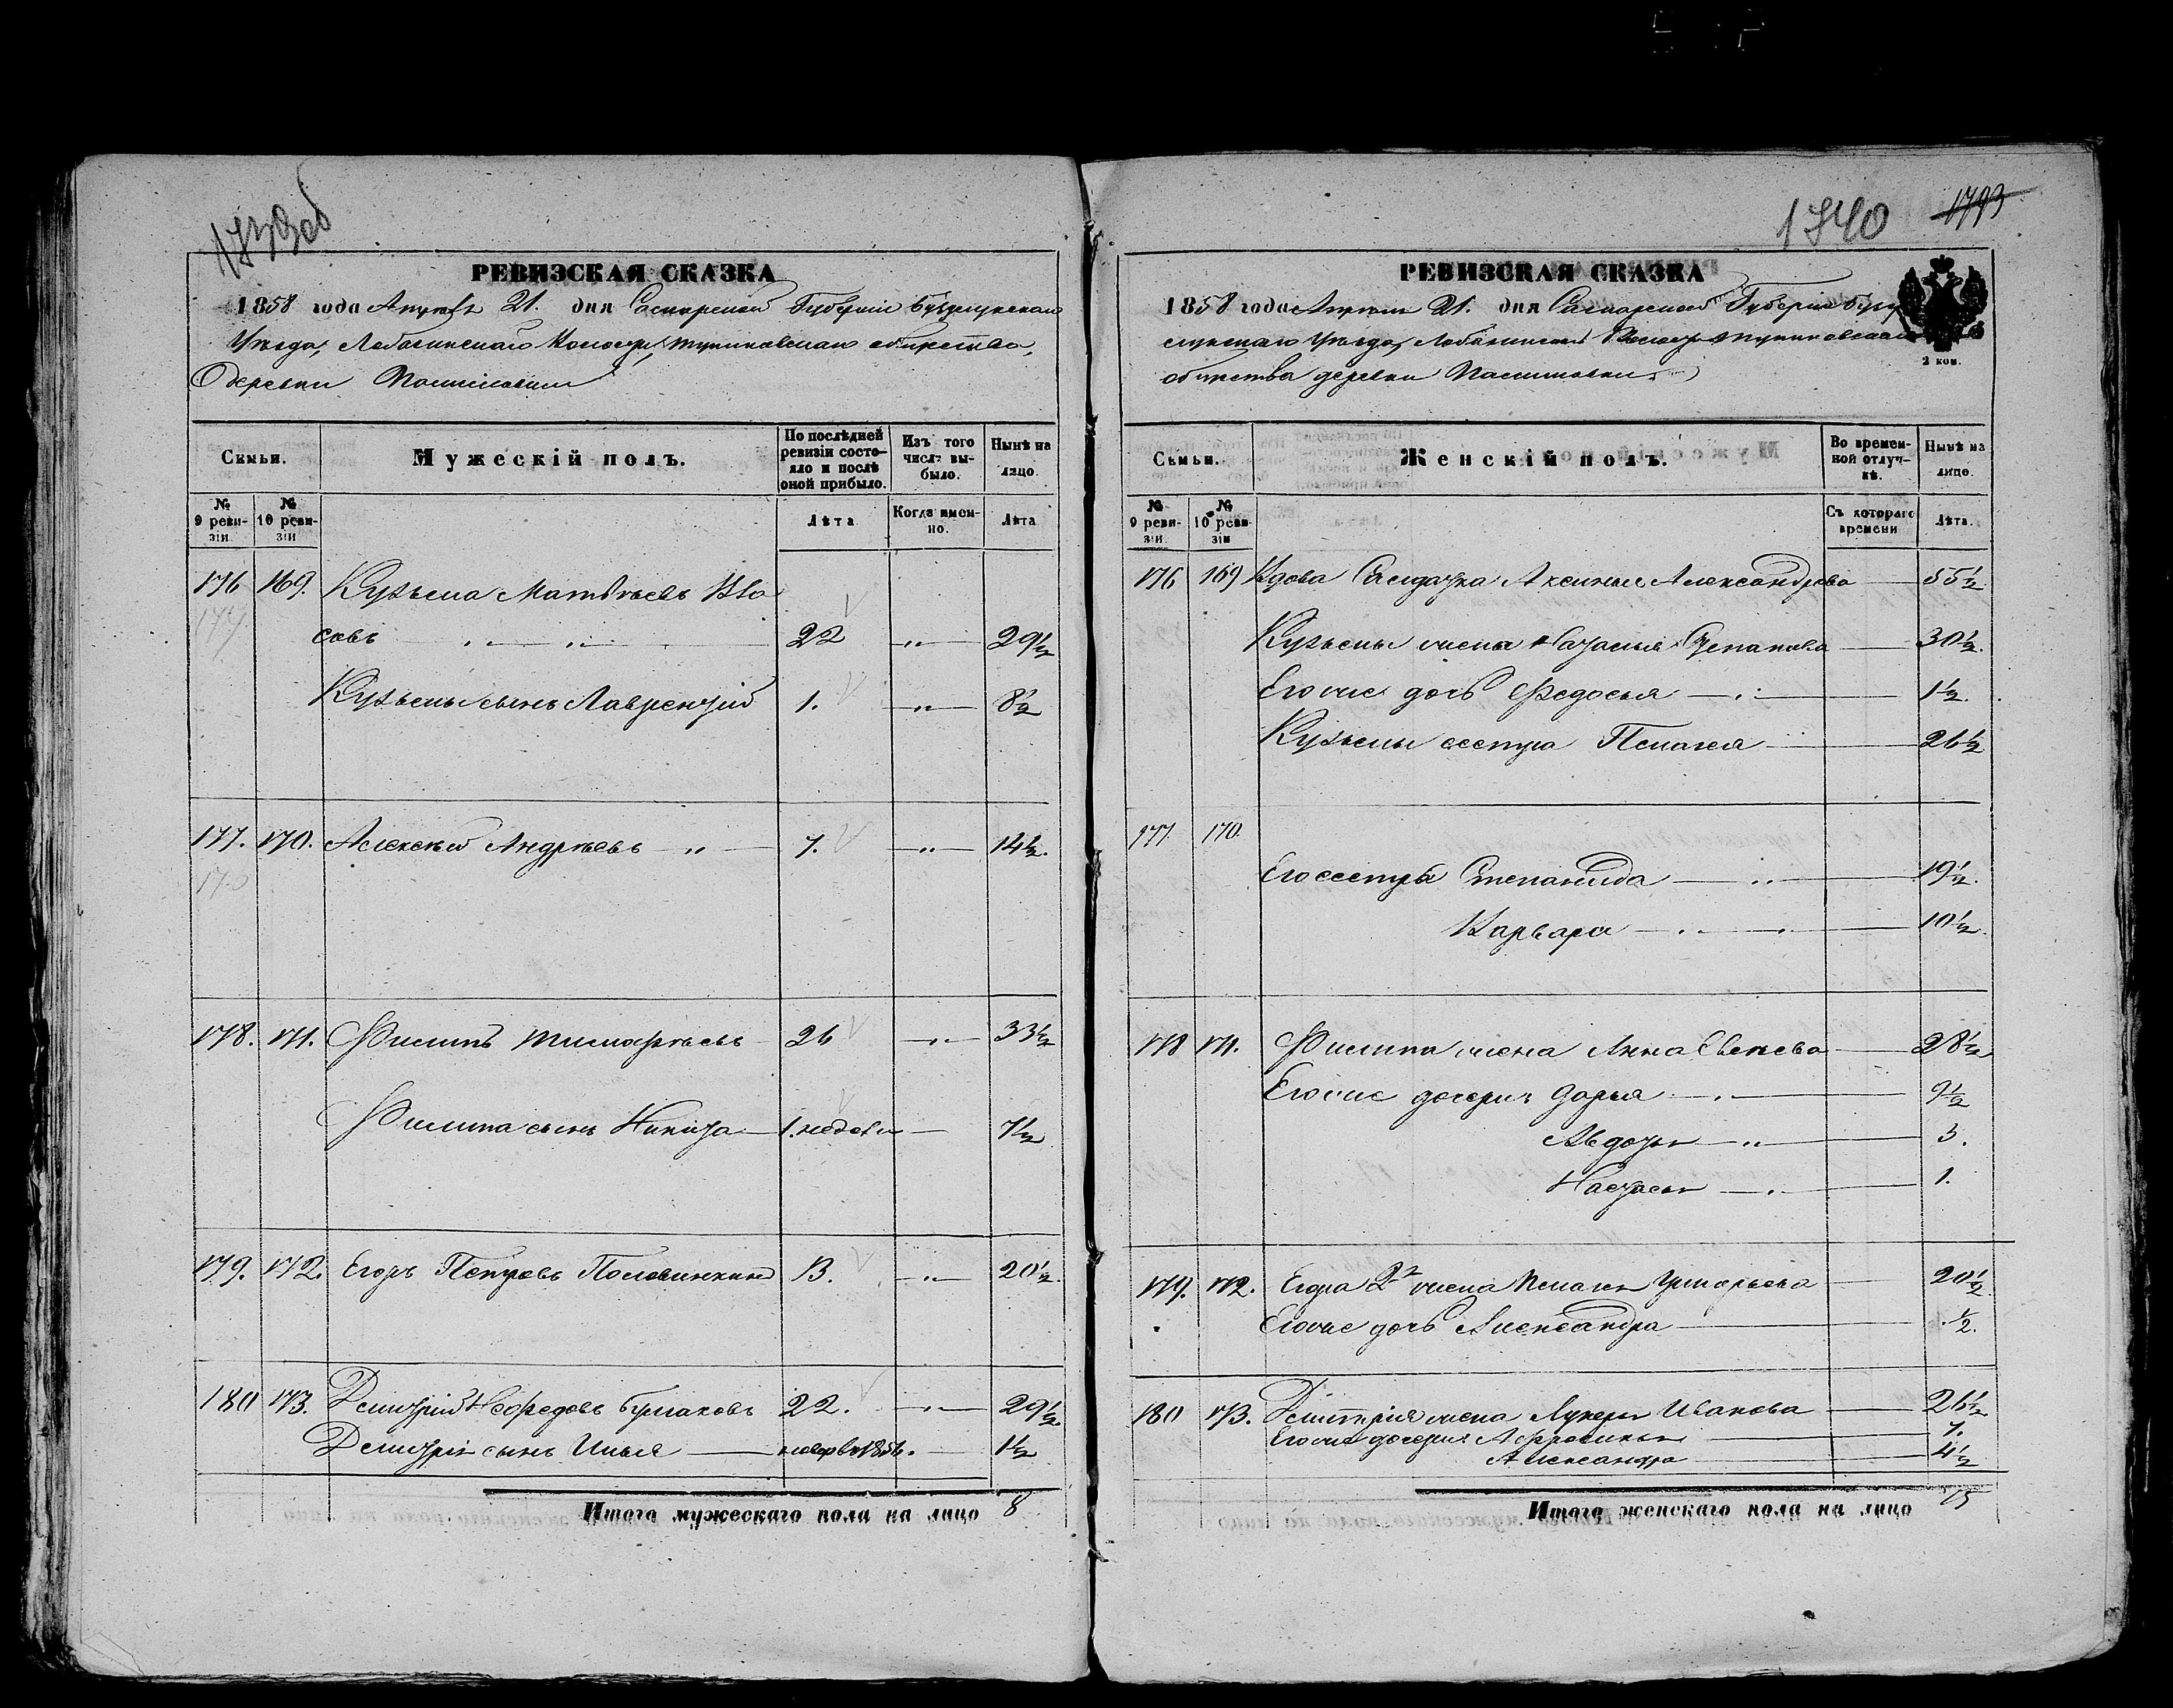 1739об
РЕВИЗСКАЯ СКАЗКА
1858 года Апреля 21. дня Самарской Губерніи Бузулукскаго
Уѣзда, Лобазинскаго Волости, общества,
Деревни
Семьи.
Мужескій полъ.
По послѣдней ревизіи состояло и послѣ оной прибыло.
Изъ того числа выбыло.
Нынѣ на лицо.
№ 9 ревизіи
№ 10 ревизіи
Лѣта
Когда именно.
Лѣта
176 169. Кузьма Матвѣевъ Вла
совъ 22 29½
Кузьмы сынъ Лаврентій 1. 8½
177. 170. Алексѣй Андрѣевъ 7. 14½.
178. 171. Филипъ Тимофѣевъ 26 33½
Филипа сынъ Никита 1. недѣли 7½
179. 172. Егоръ Петровъ Половинкинъ 13. 20½.
180 173. Дмитрій Нефедовъ Бурлаковъ 22. 29½
Дмитрія сынъ Илья 1856. 1½
Итого мужескаго пола на лицо 8
1740 1793
РЕВИЗСКАЯ СКАЗКА
1858 года Апреля 21. дня Самарской Губерніи Бузу
лукскаго Уѣзда, Лобазинской Волости
общества деревни
2 коп.
Семьи.
Женскій полъ.
Во временной отлучкѣ.
Нынѣ на лицо.
№ 9 ревизіи
№ 10 ревизіи
Съ котораго времени
Лѣта.
176 169 Вдова Солдатка Аксинья Александрова 55½
Кузьмы жена Наталья Степанова 30½.
Егоже дочь Федосья 1½.
Кузьмы сестра Пелагея 26½
177. 170.
Его сестры Степанида 19½.
Варвара 10½.
178 171. Филипа жена Анна 28½
Егоже дочери Дарья 9½
Авдотья 3.
Настасья 1.
179. 172. Егора 2я жена Пелагея Григорьева 20½
Егоже дочь Александра ½.
180 173. Дмитрія жена Лукерья Иванова 26½
Егоже дочери Афросинья 7.
Александра 4½
Итого женскаго пола на лицо 15